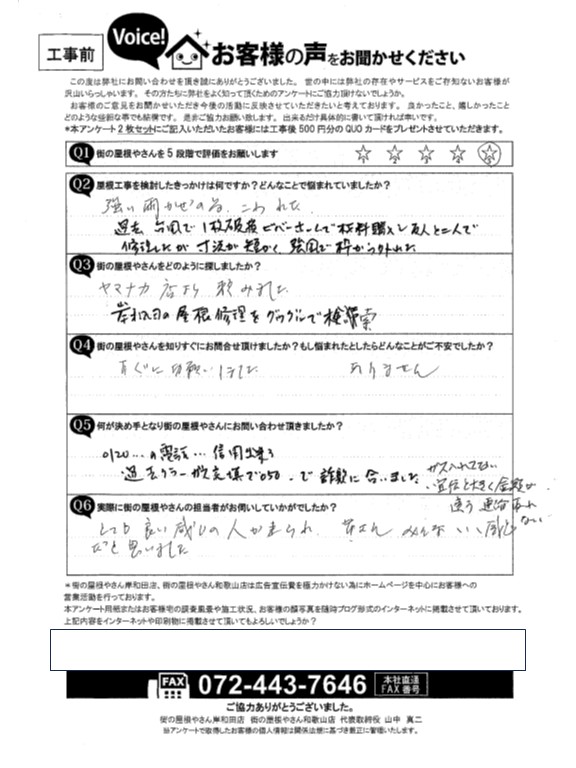 工事前
Voice!
お客様の声をお聞かせください
この度は弊社にお問い合わせを頂き誠にありがとうございました。世の中には弊社の存在やサービスをご存知ないお客様が
沢山いらっしゃいます。その方たちに弊社をよく知って頂くためのアンケートにご協力頂けないでしょうか。
お客様のご意見をお聞かせいただき今後の活動に反映させていただきたいと考えております。良かったこと、嬉しかったこと
どのような些細な事でも結構です。是非ご協力お願い致します。出来るだけ具体的に書いて頂ければ幸いです。
*本アンケート2枚セットにご記入いただいたお客様には工事後500円分のQUOカードをプレゼントさせていただきます。
Q1 街の屋根やさんを5段階で評価をお願いします
1 2 3 4 5
Q2 屋根工事を検討したきっかけは何ですか?どんなことで悩まれていましたか?
強い雨かぜの為、こわれた。
過去 台風で1枚破損 ビバホームで材料購入し友人と二人で
修理したが 寸法が短かく、強風で枠から外れた
Q3 街の屋根やさんをどのように探しましたか?
ヤマナカ 店より 頼みました
岸和田の屋根修理をグーグルで検索
Q4 街の屋根やさんを知りすぐにお問合せ頂けましたか?もし悩まれたとしたらどんなことがご不安でしたか?
すぐにお願いしました ありません
Q5 何が決め手となり街の屋根やさんにお問い合わせ頂きましたか?
0120...の電話...信用出来る
過去クーラーガス充填で050..で詐欺に合いました
ガス入れてない
宣伝と大きく金額が
違う 連絡取れ
ない
Q6 実際に街の屋根やさんの担当者がお伺いしていかがでしたか?
とても良い感じの人が来られ、 みんな いい感じ
だと思いました
*街の屋根やさん岸和田店、街の屋根やさん和歌山店は広告宣伝費を極力かけない為にホームページを中心にお客様への
営業活動を行っております。
本アンケート用紙またはお客様宅の調査風景や施工状況、お客様の顔写真を随時ブログ形式のインターネットに掲載させて頂いております。
上記内容をインターネットや印刷物に掲載させて頂いてもよろしいでしょうか?
FAX 072-443-7646 本社直通
FAX番号
ご協力ありがとうございました。
街の屋根やさん岸和田店 街の屋根やさん和歌山店 代表取締役 山中 真二
※アンケートで取得したお客様の個人情報は関係法規に基づき厳正に管理いたします。